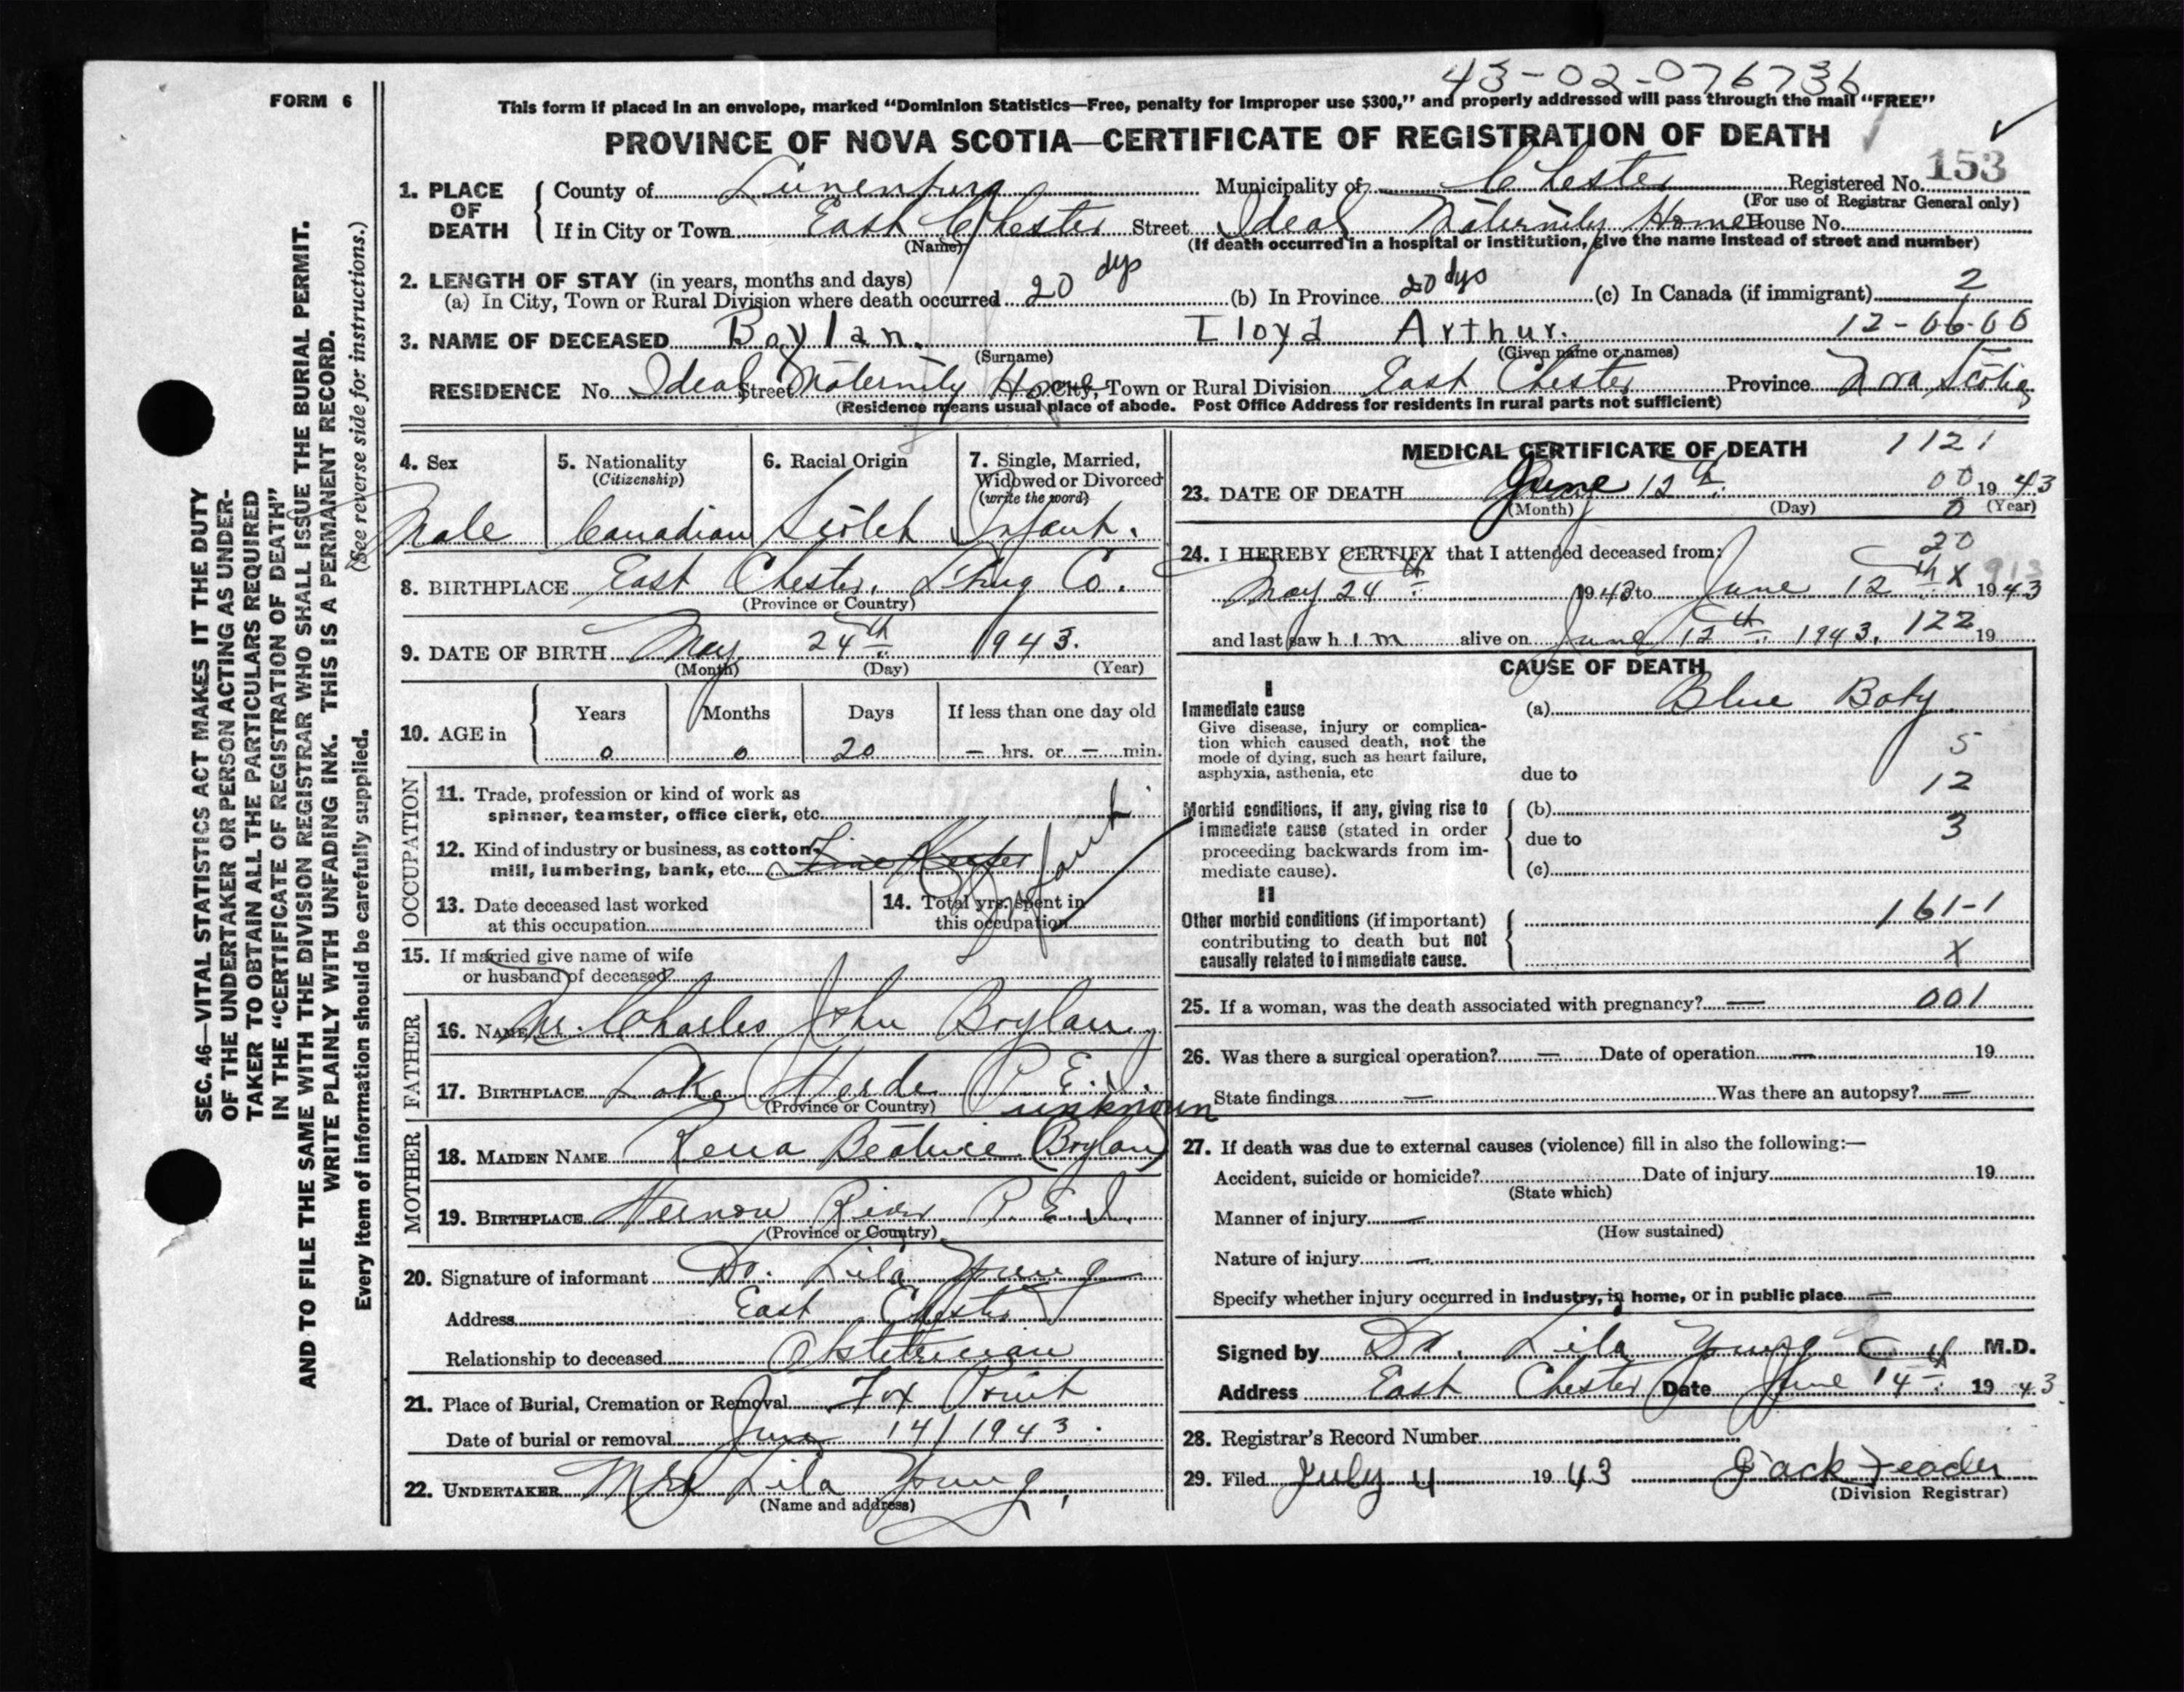 43-02-076736
FORM 6
This form if placed in an envelope, marked "Dominion Statistics—Free, penalty for improper use $300," and properly addressed will pass through the mail "FREE"
PROVINCE OF NOVA SCOTIA—CERTIFICATE OF REGISTRATION OF DEATH
1. PLACE OF DEATH
County of Lunenburg Municipality of Chester Registered No. 153
(For use of Registrar General only)
If in City or Town East Chester Street Ideal Maternity Home House No.
(Name) (If death occurred in a hospital or institution, give the name instead of street and number)
2. LENGTH OF STAY (in years, months and days)
(a) In City, Town or Rural Division where death occurred 20 dys (b) In Province 20 dys (c) In Canada (if immigrant) 2
3. NAME OF DECEASED Boylan. Lloyd Arthur. 12-06-06
(Surname) (Given name or names)
RESIDENCE No. Ideal Street Maternity Home City, Town or Rural Division East Chester Province Nova Scotia
(Residence means usual place of abode. Post Office Address for residents in rural parts not sufficient)
4. Sex
Male
5. Nationality
(Citizenship)
Canadian
6. Racial Origin
Scotch
7. Single, Married,
Widowed or Divorced
(write the word)
Infant.
8. BIRTHPLACE East Chester, L'Burg Co.
(Province or Country)
9. DATE OF BIRTH May 24th 1943.
(Month) (Day) (Year)
10. AGE in
Years Months Days If less than one day old
0 0 20 — hrs. or — min.
OCCUPATION
11. Trade, profession or kind of work as
spinner, teamster, office clerk, etc.
12. Kind of industry or business, as cotton-
mill, lumbering, bank, etc. Infant
13. Date deceased last worked
at this occupation
14. Total yrs. spent in
this occupation
15. If married give name of wife
or husband of deceased
FATHER
16. NAME Mr. Charles John Boylan
17. BIRTHPLACE Lake P.E.I.
(Province or Country)
unknown
MOTHER
18. MAIDEN NAME Rena Beatrice (Boylan)
19. BIRTHPLACE Vernon River P.E.I.
(Province or Country)
20. Signature of informant Dr. Lila Young
Address East Chester
Relationship to deceased Obstetrician
21. Place of Burial, Cremation or Removal Fox Point
Date of burial or removal June 14/1943.
22. UNDERTAKER Mrs Lila Young,
(Name and address)
MEDICAL CERTIFICATE OF DEATH 1121
23. DATE OF DEATH June 12th. 00 1943
(Month) (Day) 0 (Year)
24. I HEREBY CERTIFY that I attended deceased from: 20
913
May 24th 1943 to June 12th X 1943
and last saw h im alive on June 12th 1943. 122 19
CAUSE OF DEATH
I
Immediate cause
Give disease, injury or complica-
tion which caused death, not the
mode of dying, such as heart failure,
asphyxia, asthenia, etc
(a) Blue Baby
5
due to
12
Morbid conditions, if any, giving rise to
immediate cause (stated in order
proceeding backwards from im-
mediate cause).
(b)
due to 3
(c)
II
Other morbid conditions (if important)
contributing to death but not
causally related to immediate cause.
161-1
X
25. If a woman, was the death associated with pregnancy? — 001
26. Was there a surgical operation? — Date of operation — 19
State findings — Was there an autopsy? —
27. If death was due to external causes (violence) fill in also the following:—
Accident, suicide or homicide? Date of injury 19
(State which)
Manner of injury —
(How sustained)
Nature of injury —
Specify whether injury occurred in industry, in home, or in public place —
Signed by Dr. Lila Young M.D.
Address East Chester Date June 14 1943
28. Registrar's Record Number
29. Filed July 4 1943 Jack Feader
(Division Registrar)
SEC. 46—VITAL STATISTICS ACT MAKES IT THE DUTY
OF THE UNDERTAKER OR PERSON ACTING AS UNDER-
TAKER TO OBTAIN ALL THE PARTICULARS REQUIRED
IN THE "CERTIFICATE OF REGISTRATION OF DEATH"
AND TO FILE THE SAME WITH THE DIVISION REGISTRAR WHO SHALL ISSUE THE BURIAL PERMIT.
WRITE PLAINLY WITH UNFADING INK. THIS IS A PERMANENT RECORD.
Every item of information should be carefully supplied. (See reverse side for instructions.)